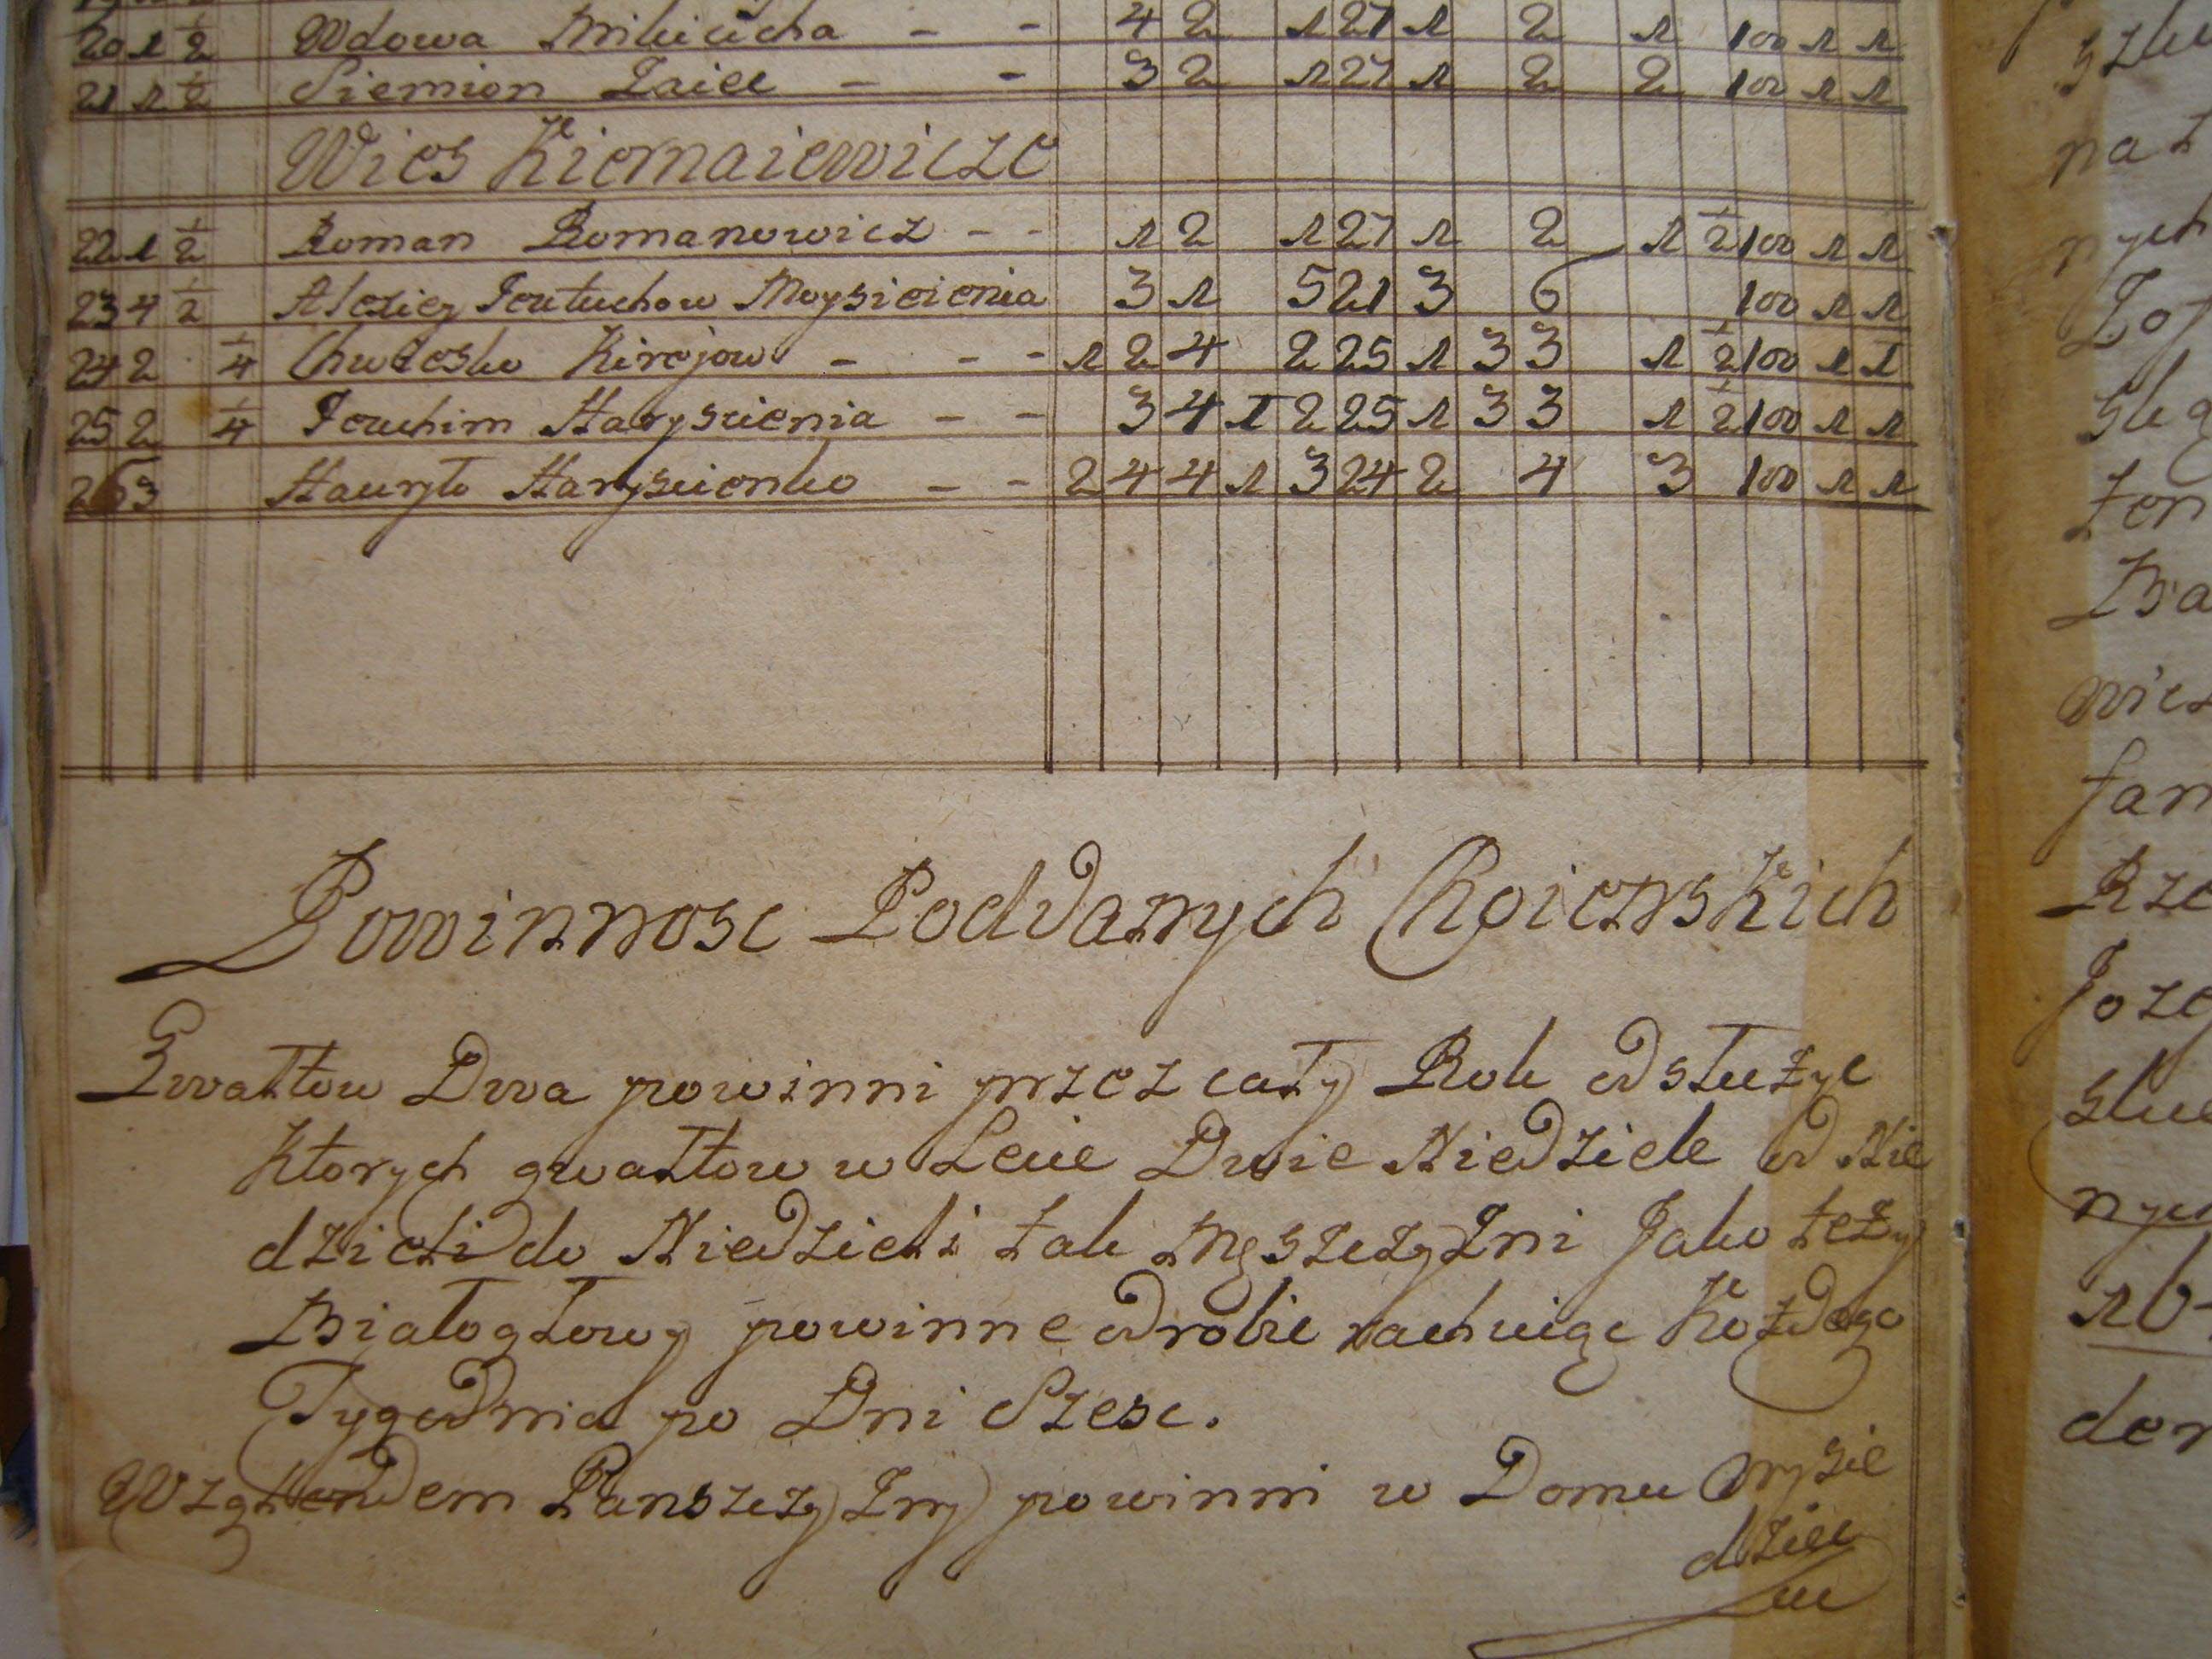 20 1 1/2 Wdowa Mikicicha - - 4 2 1 27 1 2 1 100 1 1
21 1 1/2 Siemion Zaiec - - 3 2 1 27 1 2 2 100 1 1
Wies Kiemaiewicze
22 1 1/2 Roman Romanowicz - - 1 2 1 27 1 2 1 1/2 100 1 1
23 4 1/2 Alexiey Moysieienia 3 1 5 21 3 6 100 1 1
24 2 1/4 Chwedsko Kirejow - - - 1 2 4 2 25 1 3 3 1 1/2 100 1 1
25 2 1/4 Jouchim Haryscienia - - 3 4 1 2 25 1 3 3 1 1/2 100 1 1
26 3 Hauryło Haryscienko - - 2 4 4 1 3 24 2 4 3 100 1 1
Powinnosc Poddanych Rgienskich
Gwałtow Dwa powinni przez cały Rok odsłużyc
Ktorych gwałtow w Lecie Dwie Niedziele od Nie
dzieli do Niedzieli tak Męszczyzni Jako też y
Białogłowy powinne odrobic rachuiąc Każdego
Tygodnia po Dni Szesc.
Wzglendem Panszczyzny powinni w Domu Wysie
dziec
szu
nat
nych
slu
wicz
Rze
Joze